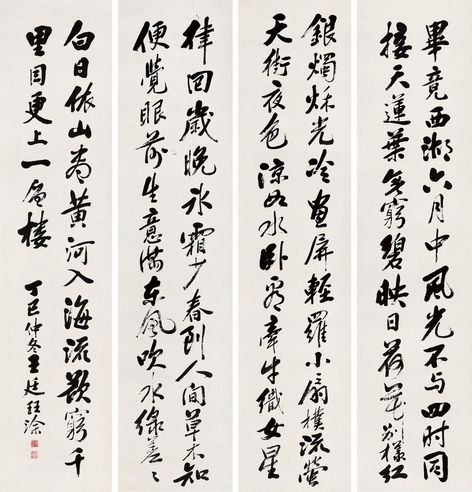 畢竟西湖六月中風光不与四時同
接天蓮葉無窮碧映日荷花別樣红
銀燭秋光冷画屏輕羅小扇撲流螢
天街夜色凉如水卧看牽牛織女星
律回歲晚冰霜少春到人間草木知
便覺眼前生意满東風吹水綠差〻
白日依山尽黄河入海流欲窮千
里目更上一層樓
丁巳仲冬王廷